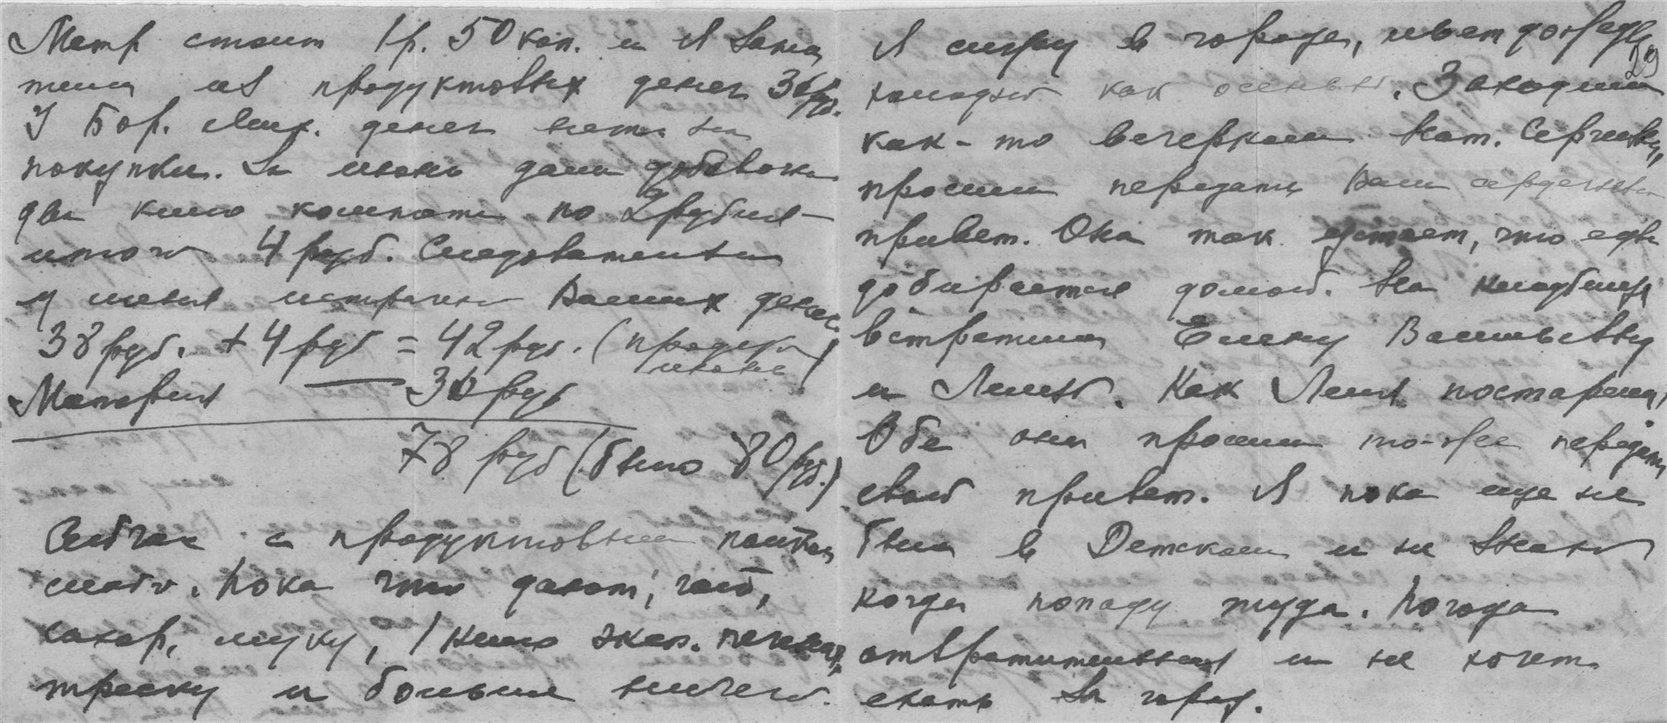 Метр стоит 1 р. 50 коп. и я запла
тила из продуктовых денег 36 руб.
У Бор. Мих. денег нет на
покупки. За июнь дали добавочн
два кило компота по 2 рубля –
итого 4 руб. Следовательно
у меня истрачено Ваших денег
38 руб. + 4 руб = 42 руб. (продукты
июнь)
Материя — 36 руб
78 руб (было 80 руб.)
Сейчас с продуктовым пайком
слабо. Пока что дают; чай,
сахар, муку, 1 кило экс. печенья,
треску и больше ничего.
29
Я сижу в городе, идет дождь,
холодно как осенью. Заходила
как-то вечерком Кат. Сергеевна,
просила передать Вам сердечный
привет. Она так устает, что едва
добирается домой. На кладбище
встретила Елену Васильевну
и Лилю. Как Лиля постарела,
Обе они просили то-же передать
свой привет. Я пока еще не
была в Детском и не знаю
когда попаду туда. Погода
отвратительная и не хочется
ехать за город.